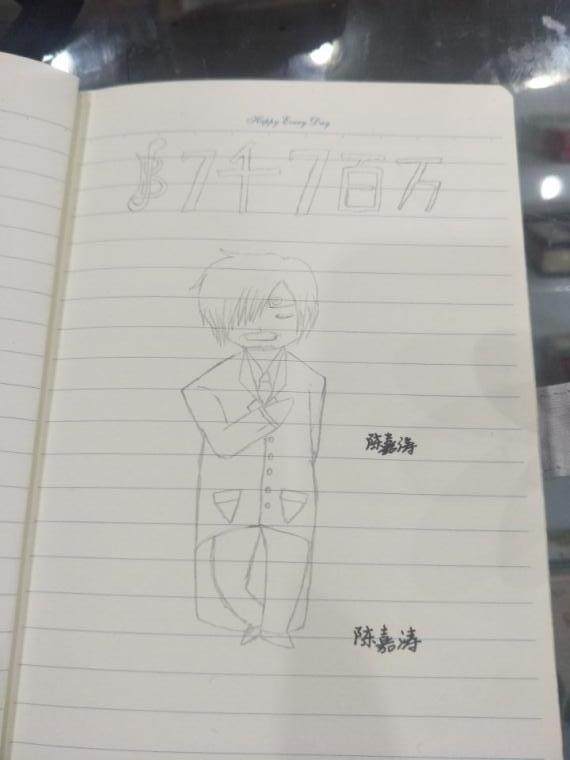 Happy Every Day
฿7千7百万
陈嘉涛
陈嘉涛